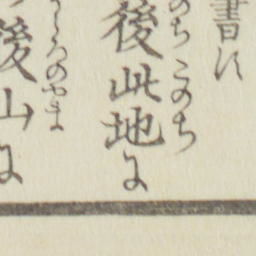 書す
後此地に
のちこのち
後山に
うしろのやまに